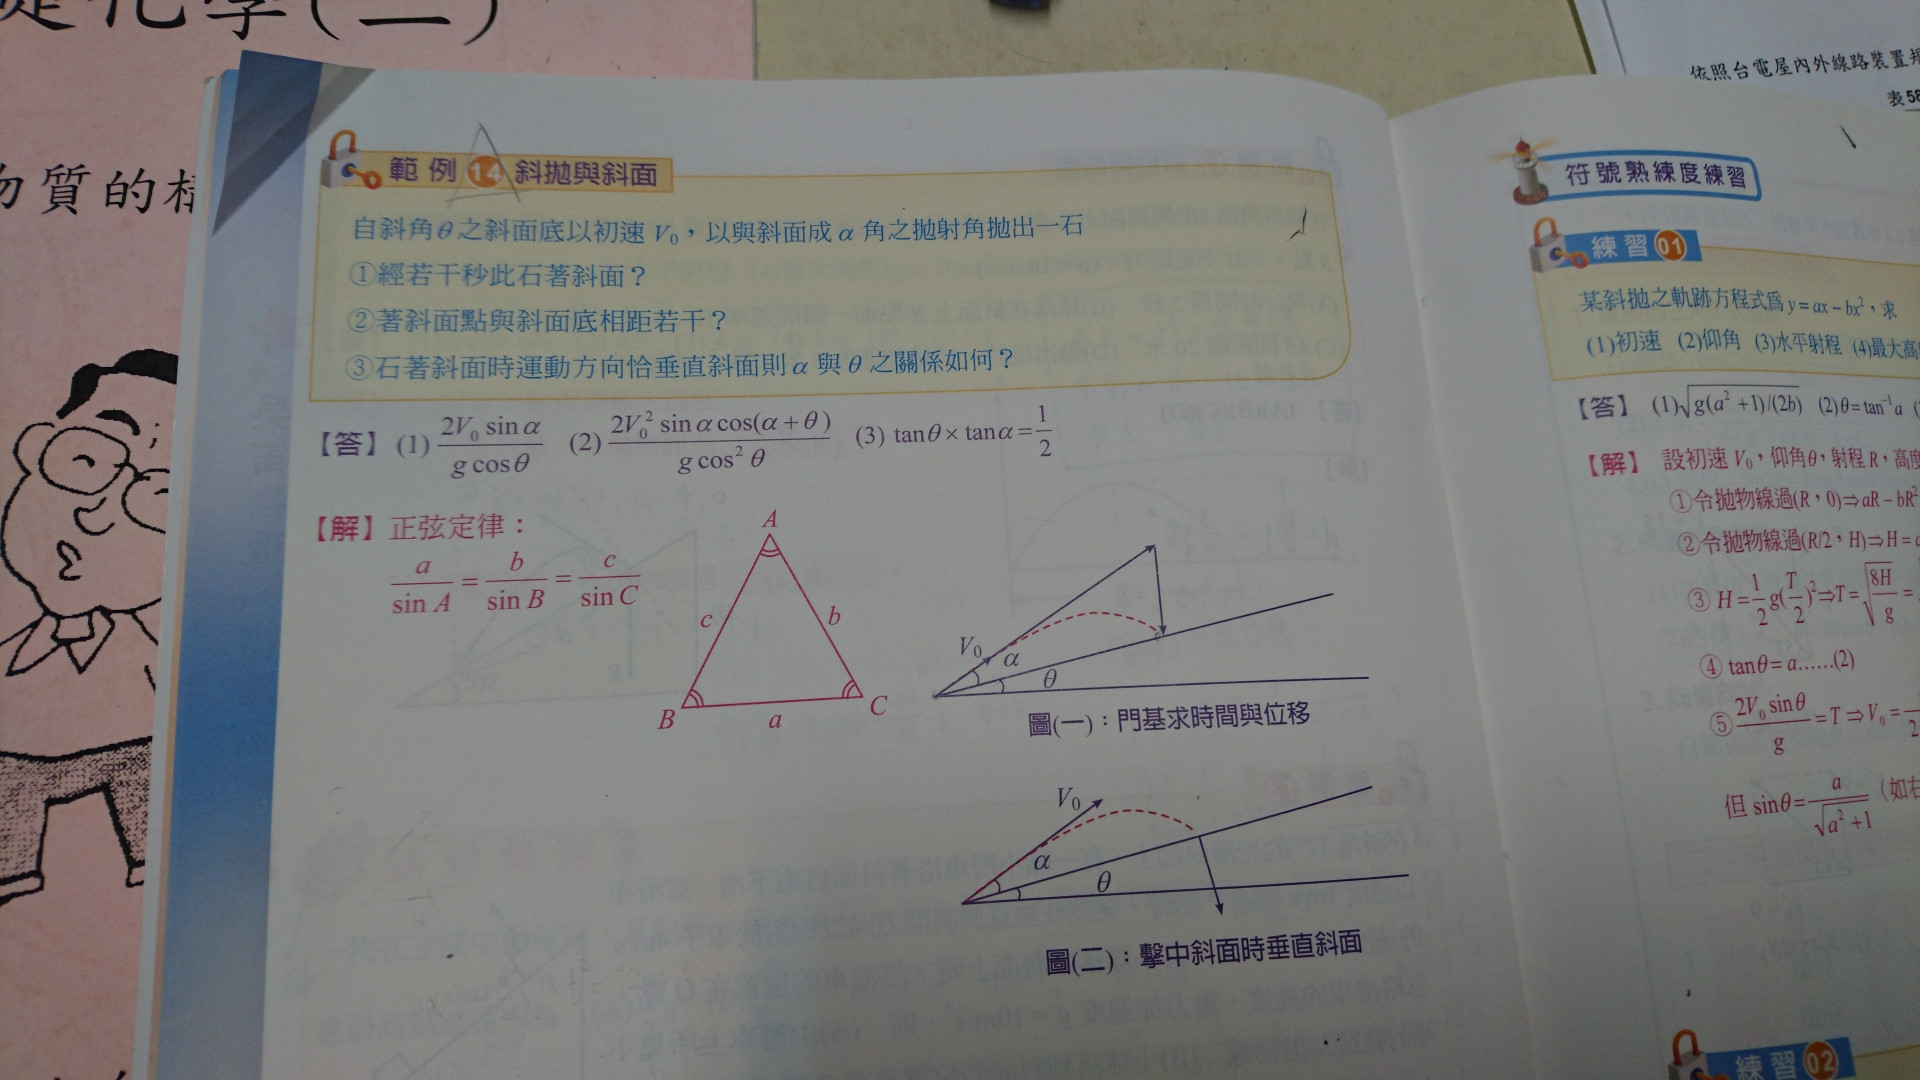 學(二)
物質的
依照台電屋內外線路裝置規
表58
範例 14 斜拋與斜面
自斜角θ之斜面底以初速 V₀，以與斜面成 α 角之拋射角拋出一石
①經若干秒此石著斜面？
②著斜面點與斜面底相距若干？
③石著斜面時運動方向恰垂直斜面則 α 與 θ 之關係如何？
【答】 (1) 2V₀ sin α / g cos θ (2) 2V₀² sin α cos(α + θ) / g cos² θ (3) tan θ × tan α = 1/2
【解】 正弦定律：
a / sin A = b / sin B = c / sin C
A
c
b
B
a
C
V₀
α
θ
圖(一)：門基求時間與位移
V₀
α
θ
圖(二)：擊中斜面時垂直斜面
符號熟練度練習
練習 01
某斜拋之軌跡方程式為 y = ax − bx²，求
(1)初速 (2)仰角 (3)水平射程 (4)最大高
【答】 (1) √(g(a² + 1)/(2b)) (2) θ = tan⁻¹ a
【解】 設初速 V₀，仰角θ，射程 R，高度
①令拋物線過(R，0)⇒ aR − bR²
②令拋物線過(R/2，H)⇒ H =
③ H = 1/2 g(T/2)² ⇒ T = √(8H/g) =
④ tan θ = a......(2)
⑤ 2V₀ sin θ / g = T ⇒ V₀ =
但 sin θ = a / √(a² + 1) (如右
練習 02